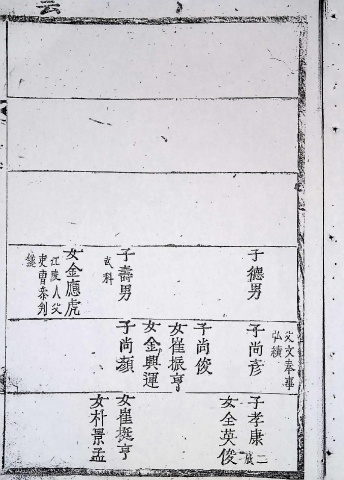 子德男
子壽男
武科
女金應虎
江陵人父
吏曹參判
父文奉事
弘績
子尚彦
子尚俊
女崔振亨
女金興運
子尚顏
子孝康
二庶
女全英俊
女崔挺亨
女朴景孟